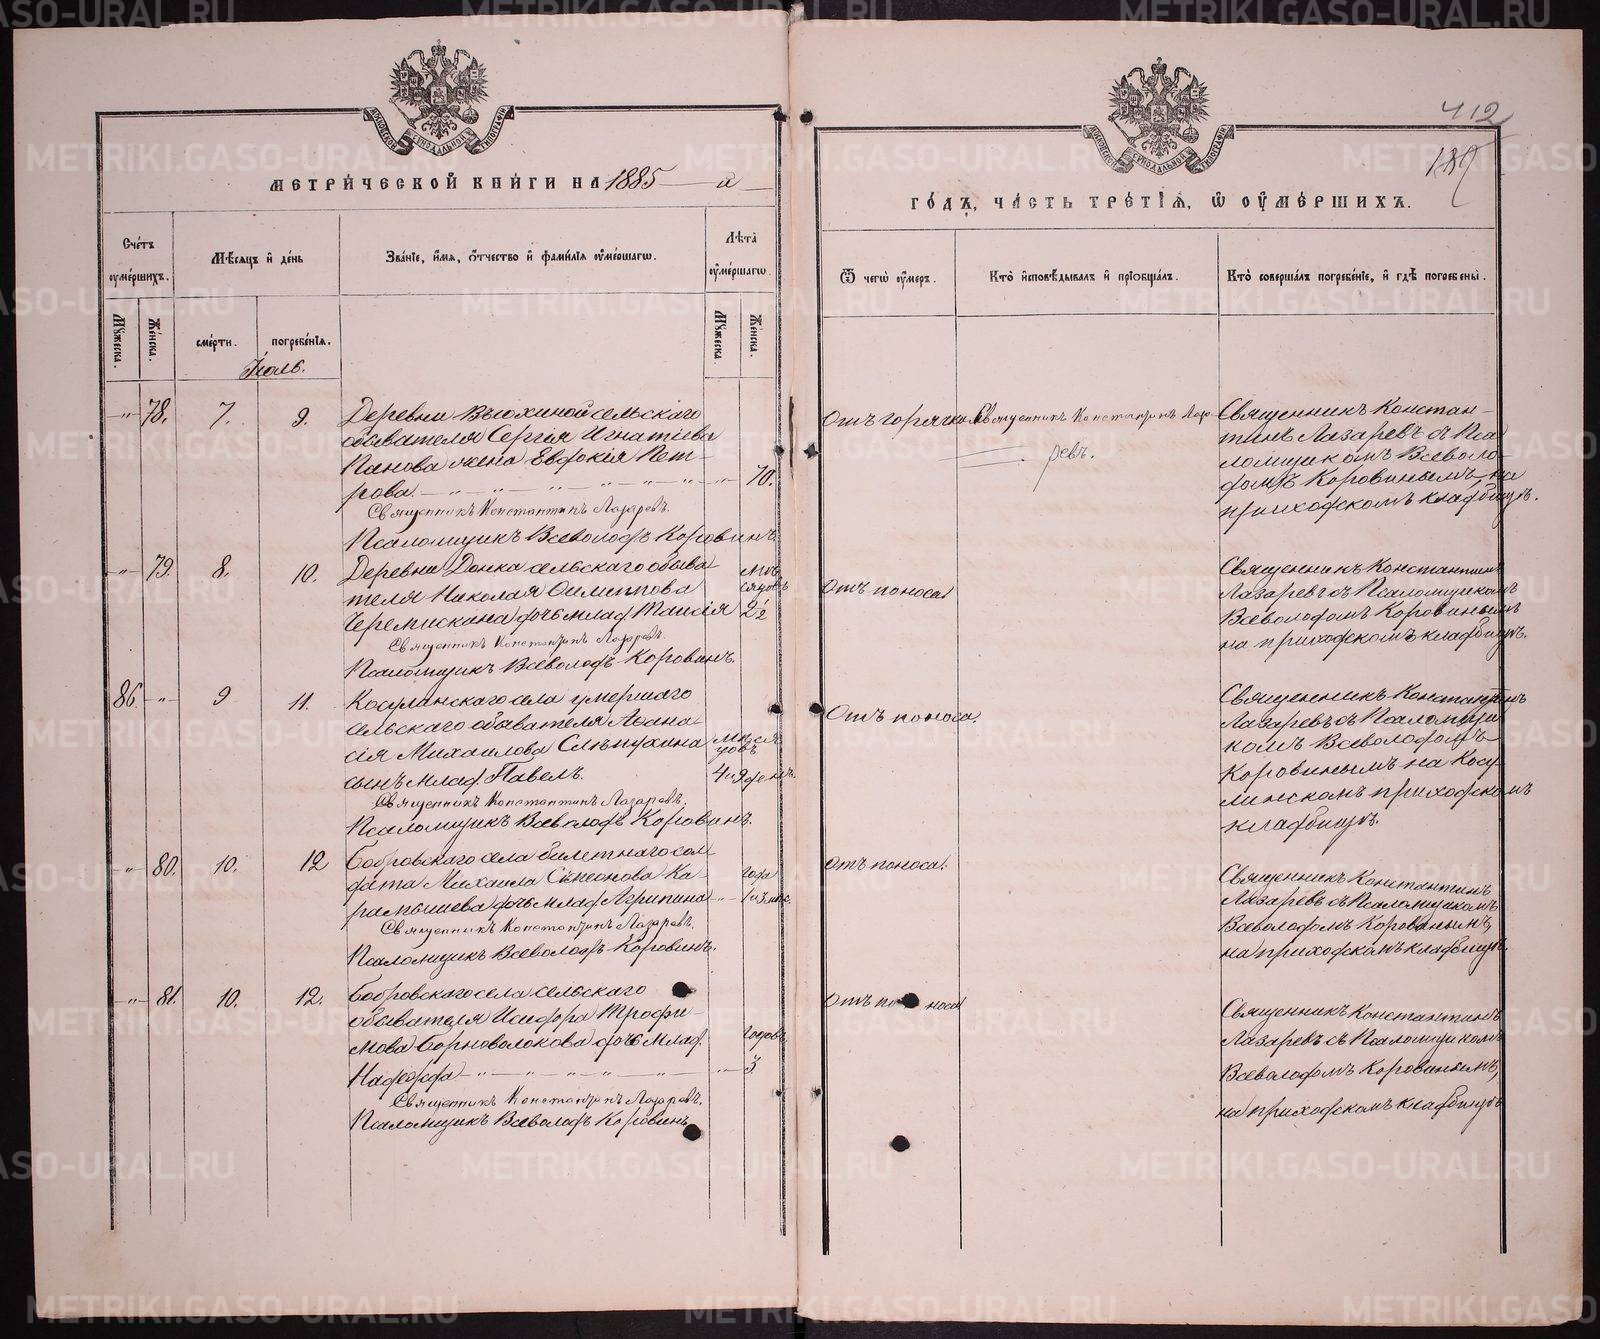 412
187
МЕТРИЧЕСКОЙ КНИГИ НА 1885 й
ГОДЪ, ЧАСТЬ ТРЕТІЯ, Ѿ ОУМЕРШИХЪ.
Счетъ оумершихъ.
Мѣсяцъ и день
Званіе, имя, отчество и фамилія оумершагѡ.
Лѣта оумершагѡ.
Ѿ чегѡ оумеръ.
Кто исповѣдывалъ и пріобщалъ.
Кто совершалъ погребеніе, и гдѣ погребены.
Мужеска.
Женска.
смерти.
погребенія.
Мужеска
Женска.
Іюль.
-"- 78. 7. 9.
Деревни Вьюхиной сельскаго
обывателя Сергія Игнатіева
Панова жена Евдокія Пет-
рова. 70.
Священникъ Константинъ Лазаревъ.
Псаломщикъ Всеволодъ Коровинъ.
Отъ горячки
Священникъ Константинъ Лаза-
ревъ.
Священникъ Констан-
тинъ Лазаревъ съ Пса
ломщикомъ Всеволо
домъ Коровинымъ на
приходскомъ кладбищѣ.
-"- 79. 8. 10.
Деревни Донка сельскаго обыва
теля Николая Филиппова
Черемискина дочь млад. Таисія
мѣ
сяцовъ
2 1/2
Священникъ Константинъ Лазаревъ.
Псаломщикъ Всеволодъ Коровинъ.
Отъ поноса
Священникъ Константинъ
Лазаревъ съ Псаломщикомъ
Всеволодомъ Коровинымъ
на приходскомъ кладбищѣ.
86. -"- 9 11.
Косулинскаго села умершаго
сельскаго обывателя Афана
сія Михаилова Слѣпухина
сынъ млад. Павелъ.
мѣся
цовъ
4 и 9 день.
Священникъ Константинъ Лазаревъ.
Псаломщикъ Всеволодъ Коровинъ.
Отъ поноса.
Священникъ Константинъ
Лазаревъ съ Псаломщи
комъ Всеволодомъ
Коровинымъ на Косу
линскомъ приходскомъ
кладбищѣ.
-"- 80. 10. 12
Бобровскаго села билетнаго сол
дата Михаила Симеонова Ка-
рамышева дочь млад. Агрипина
года
1 и 3 мѣс.
Священникъ Константинъ Лазаревъ.
Псаломщикъ Всеволодъ Коровинъ.
Отъ поноса.
Священникъ Константинъ
Лазаревъ съ Псаломщикомъ
Всеволодомъ Коровинымъ,
на приходскомъ кладбищѣ.
-"- 81. 10. 12.
Бобровскаго села сельскаго
обывателя Исидора Трофи-
мова Борноволокова дочь млад.
Надежда
годовъ
3
Священникъ Константинъ Лазаревъ.
Псаломщикъ Всеволодъ Коровинъ
Отъ поноса
Священникъ Константинъ
Лазаревъ съ Псаломщикомъ
Всеволодомъ Коровинымъ,
на приходскомъ кладбищѣ